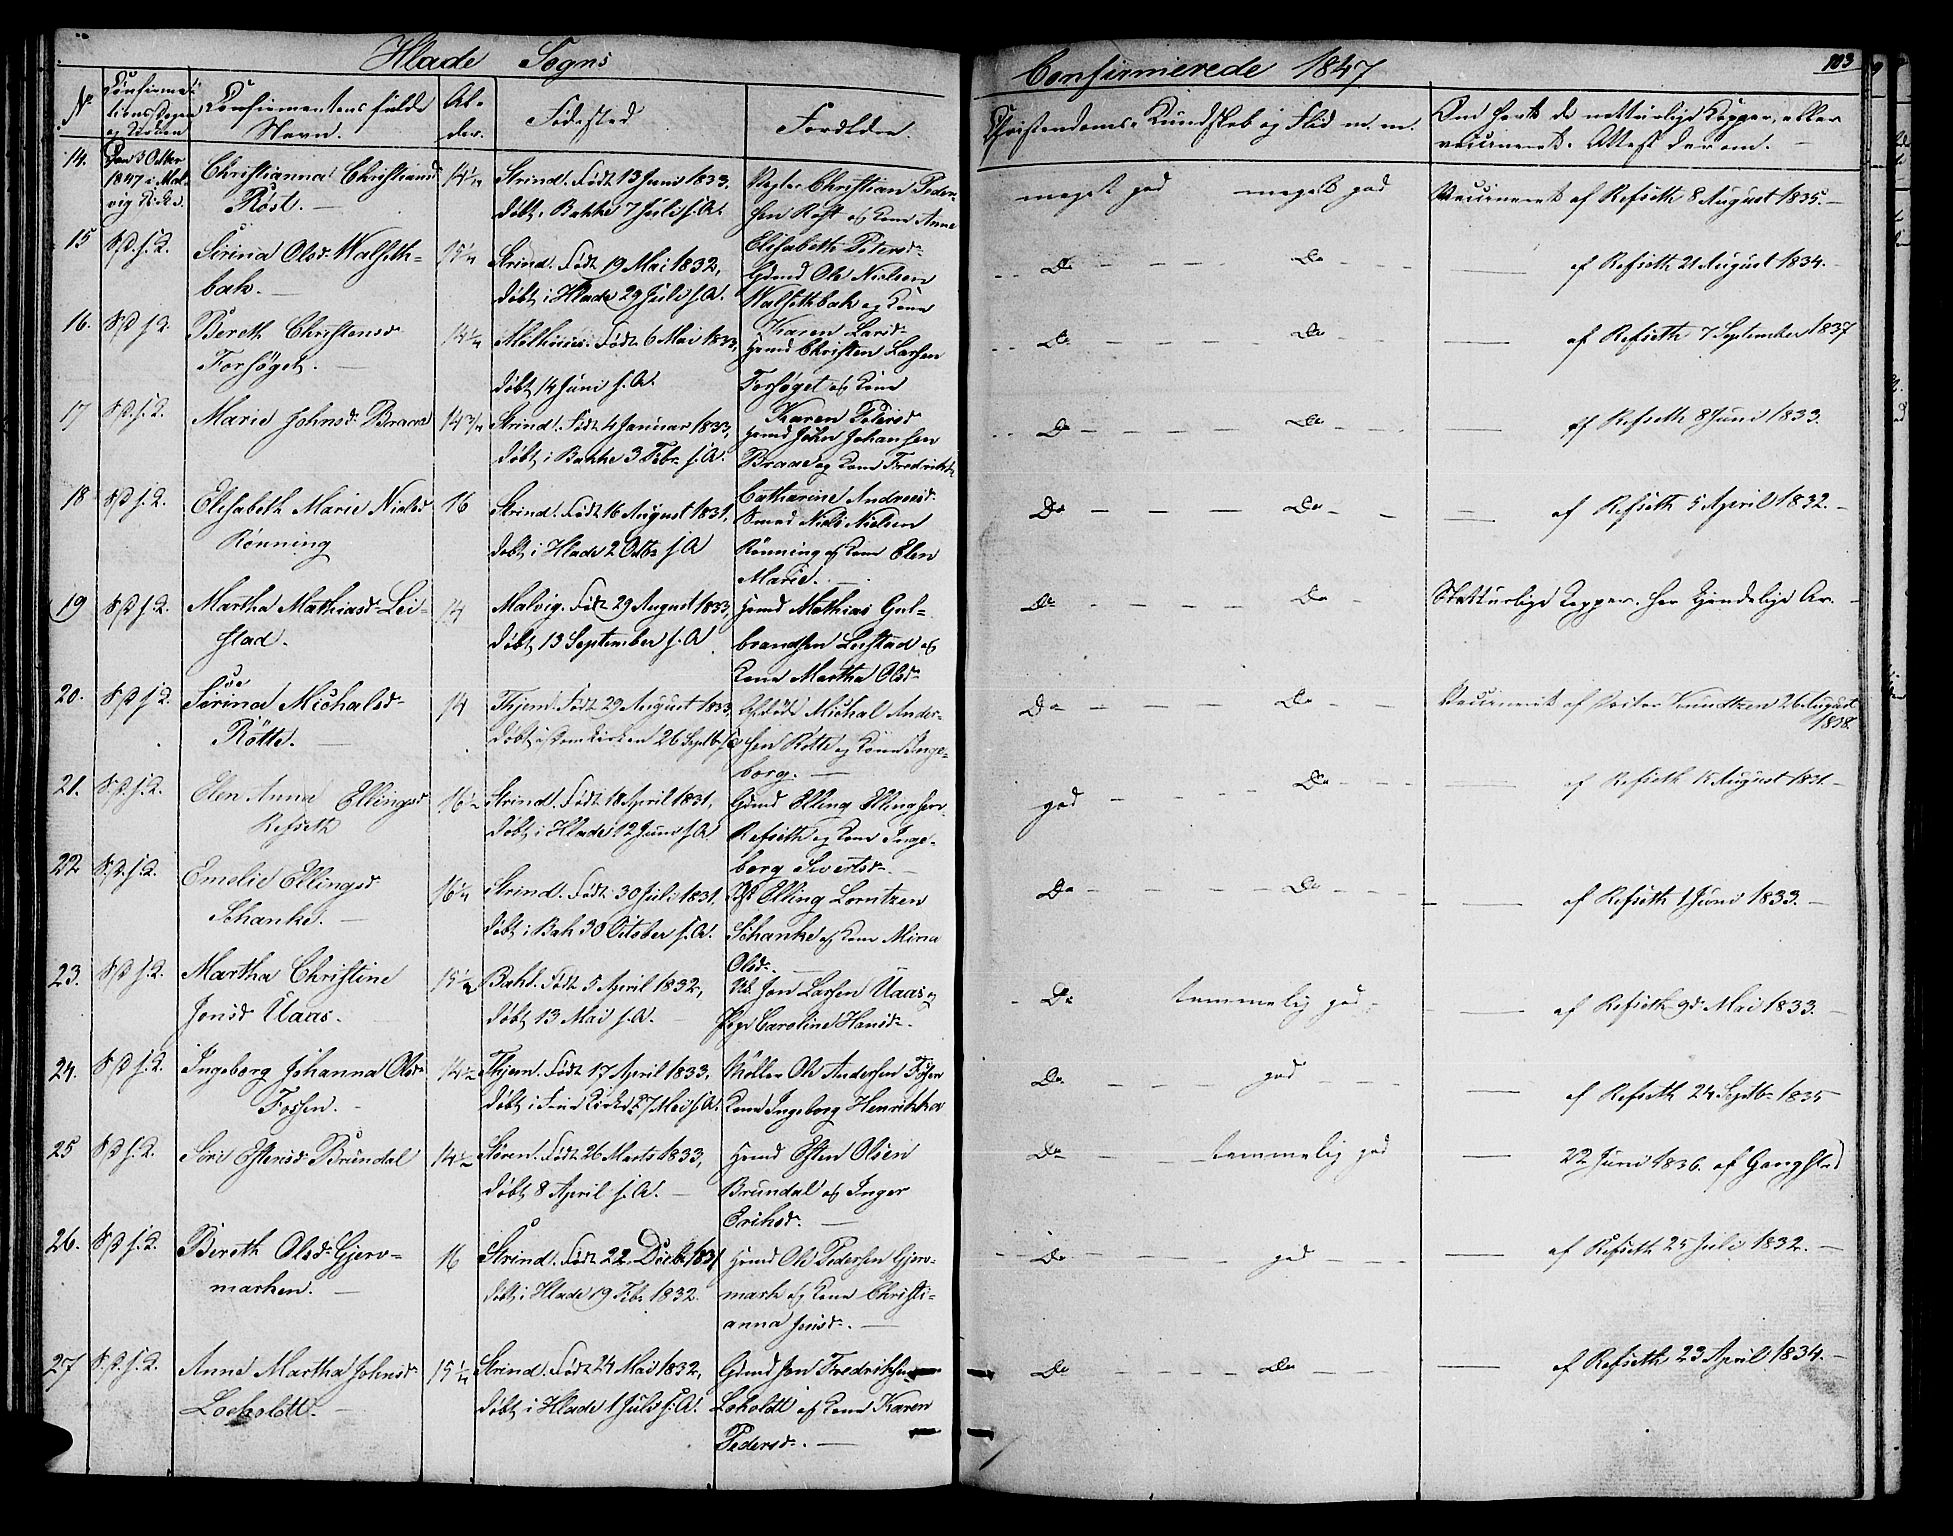 Hlade Sogns
Confirmerede 1847
103
No
Confirma-
tions Dagen
og Stedet
Confirmantens fulde
Navn.
Al-
der.
Fødested
Foreldre
Christendoms-Kundskab og Flid m. m.
Om havt de naturlige Kopper, eller
vaccineret. Attest derom.
14.
Den 3 Octbr
1847 i Mal-
vig Kirke.
Christianna Christiansd
Røst.
14 1/4
Strind. Født 13 Juni 1833.
døbt i Bakke 7 Juli s. A.
Christian Peder-
sen Røst og Kone Anne
Elisabeth Petersd.
meget god meget god
Vaccineret af Refseth 8 August 1835.
15
S. D. s. K.
Sirina Olsd. Walseth-
bak.
15 1/4
Strind. Født 19 Mai 1832,
døbt i Hlade 29 Juli s. A.
Gmd Ole Nielsen
Walsethbak og Kone
Karen Larsd.
Do Do
af Refseth 21 August 1834.
16.
S. D. s. K.
Bereth Christensd
Forsøget.
14 1/4
Født 6 Mai 1833,
døbt 14 Juni s. A.
Hmd Christen Larsen
Forsøget og Kone
Karen Petersd
Do Do
af Refseth 7 September 1837
17
S. D. s. K.
Marie Johnsd. Braae
14 3/4
Strind. Født 4 Januar 1833,
døbt i Bakke 3 Febr. s. A.
Hmd John Johansen
Braae og Kone Fredrikke
Catharine Andreasd.
Do Do
af Refseth 8 Juni 1833.
18
S. D. s. K.
Elisabeth Marie Nielsd
Rønning
16
Strind. Født 16 August 1831,
døbt i Hlade 2 Octbr s. A
Smed Niels Nielsen
Rønning og Kone Elen
Marie.
Do Do
af Refseth 5 April 1832.
19
S. D. s. K.
Martha Mathiasd. Lei-
stad.
14
Malvig. Født 29 August 1833,
døbt 13 September s. A
Hmd Mathias Gul-
brandsen Leistad og
Kone Martha Olsd.
Do Do
Naturlige Kopper. Har kjendelige Ar.
20.
S. D. s. K.
Sirina Michalsd.
Rötte.
14
Thjem. Født 29 August 1833,
døbt i Domkirken 26 Septbr s. A
Afdøde Michal Ander-
sen Rötte og Kone Inge-
borg.
Do Do
Vaccineret af Doctor Knudtzen 26 August
1838.
21.
S. D. s. K.
Elen Anna Ellingsd
Refseth
16 1/2
Strind. Født 18 April 1831,
døbt i Hlade 12 Juni s. A.
Gmd Elling Ellingsen
Refseth og Kone Inge-
borg Sivertsd.
god Do
af Refseth 15 August 1831.
22
S. D. s. K.
Emelie Ellingsd
Schanke.
16 1/4
Strind. Født 30 Juli 1831.
døbt i Bak 30 October s. A.
Elling Lorntzen
Schanke og Kone Mina
Olsd.
Do Do
af Refseth 1 Juni 1833.
23.
S. D. s. K.
Martha Christine
Jonsd Uaas.
15 1/2
Bakl. Født 5 April 1832,
døbt 13 Mai s. A.
Jon Larsen Uaas og
Pige Caroline Hansd.
Do temmelig god
af Refseth 9de Mai 1833.
24.
S. D. s. K.
Ingeborg Johanna Olsd
Fossen.
14 1/2
Thjem. Født 17 April 1833,
døbt i Frue Kirke 27 Mai s. A.
Møller Ole Andersen Fossen
Kone Ingeborg Henrikka
Do god
af Refseth 24 Septbr 1835
25
S. D. s. K.
Siri Estensd Brundal
14 1/2
Støren. Født 26 Marts 1833,
døbt 8 April s. A.
Hmd Esten Olsen
Brundal og Inger
Eriksd.
Do temmelig god
22 Juni 1836. af Gangstad
26.
S. D. s. K.
Bereth Olsd. Gjerv-
marken.
16
Strind. Født 22 Decbr 1831
døbt i Hlade 19 Febr. 1832.
Hmd Ole Pedersen Gjerv-
mark og Kone Christi-
anna Jensd.
Do god
af Refseth 25 Juli 1832.
27
S. D. s. K.
Anne Martha Johnsd
Loeholdt.
15 1/4
Strind. Født 24 Mai 1832,
døbt i Hlade 1 Juli s. A.
Gmd Jon Fredriksen
Loholdt og Kone Karen
Pedersd.
Do Do
af Refseth 23 April 1834.